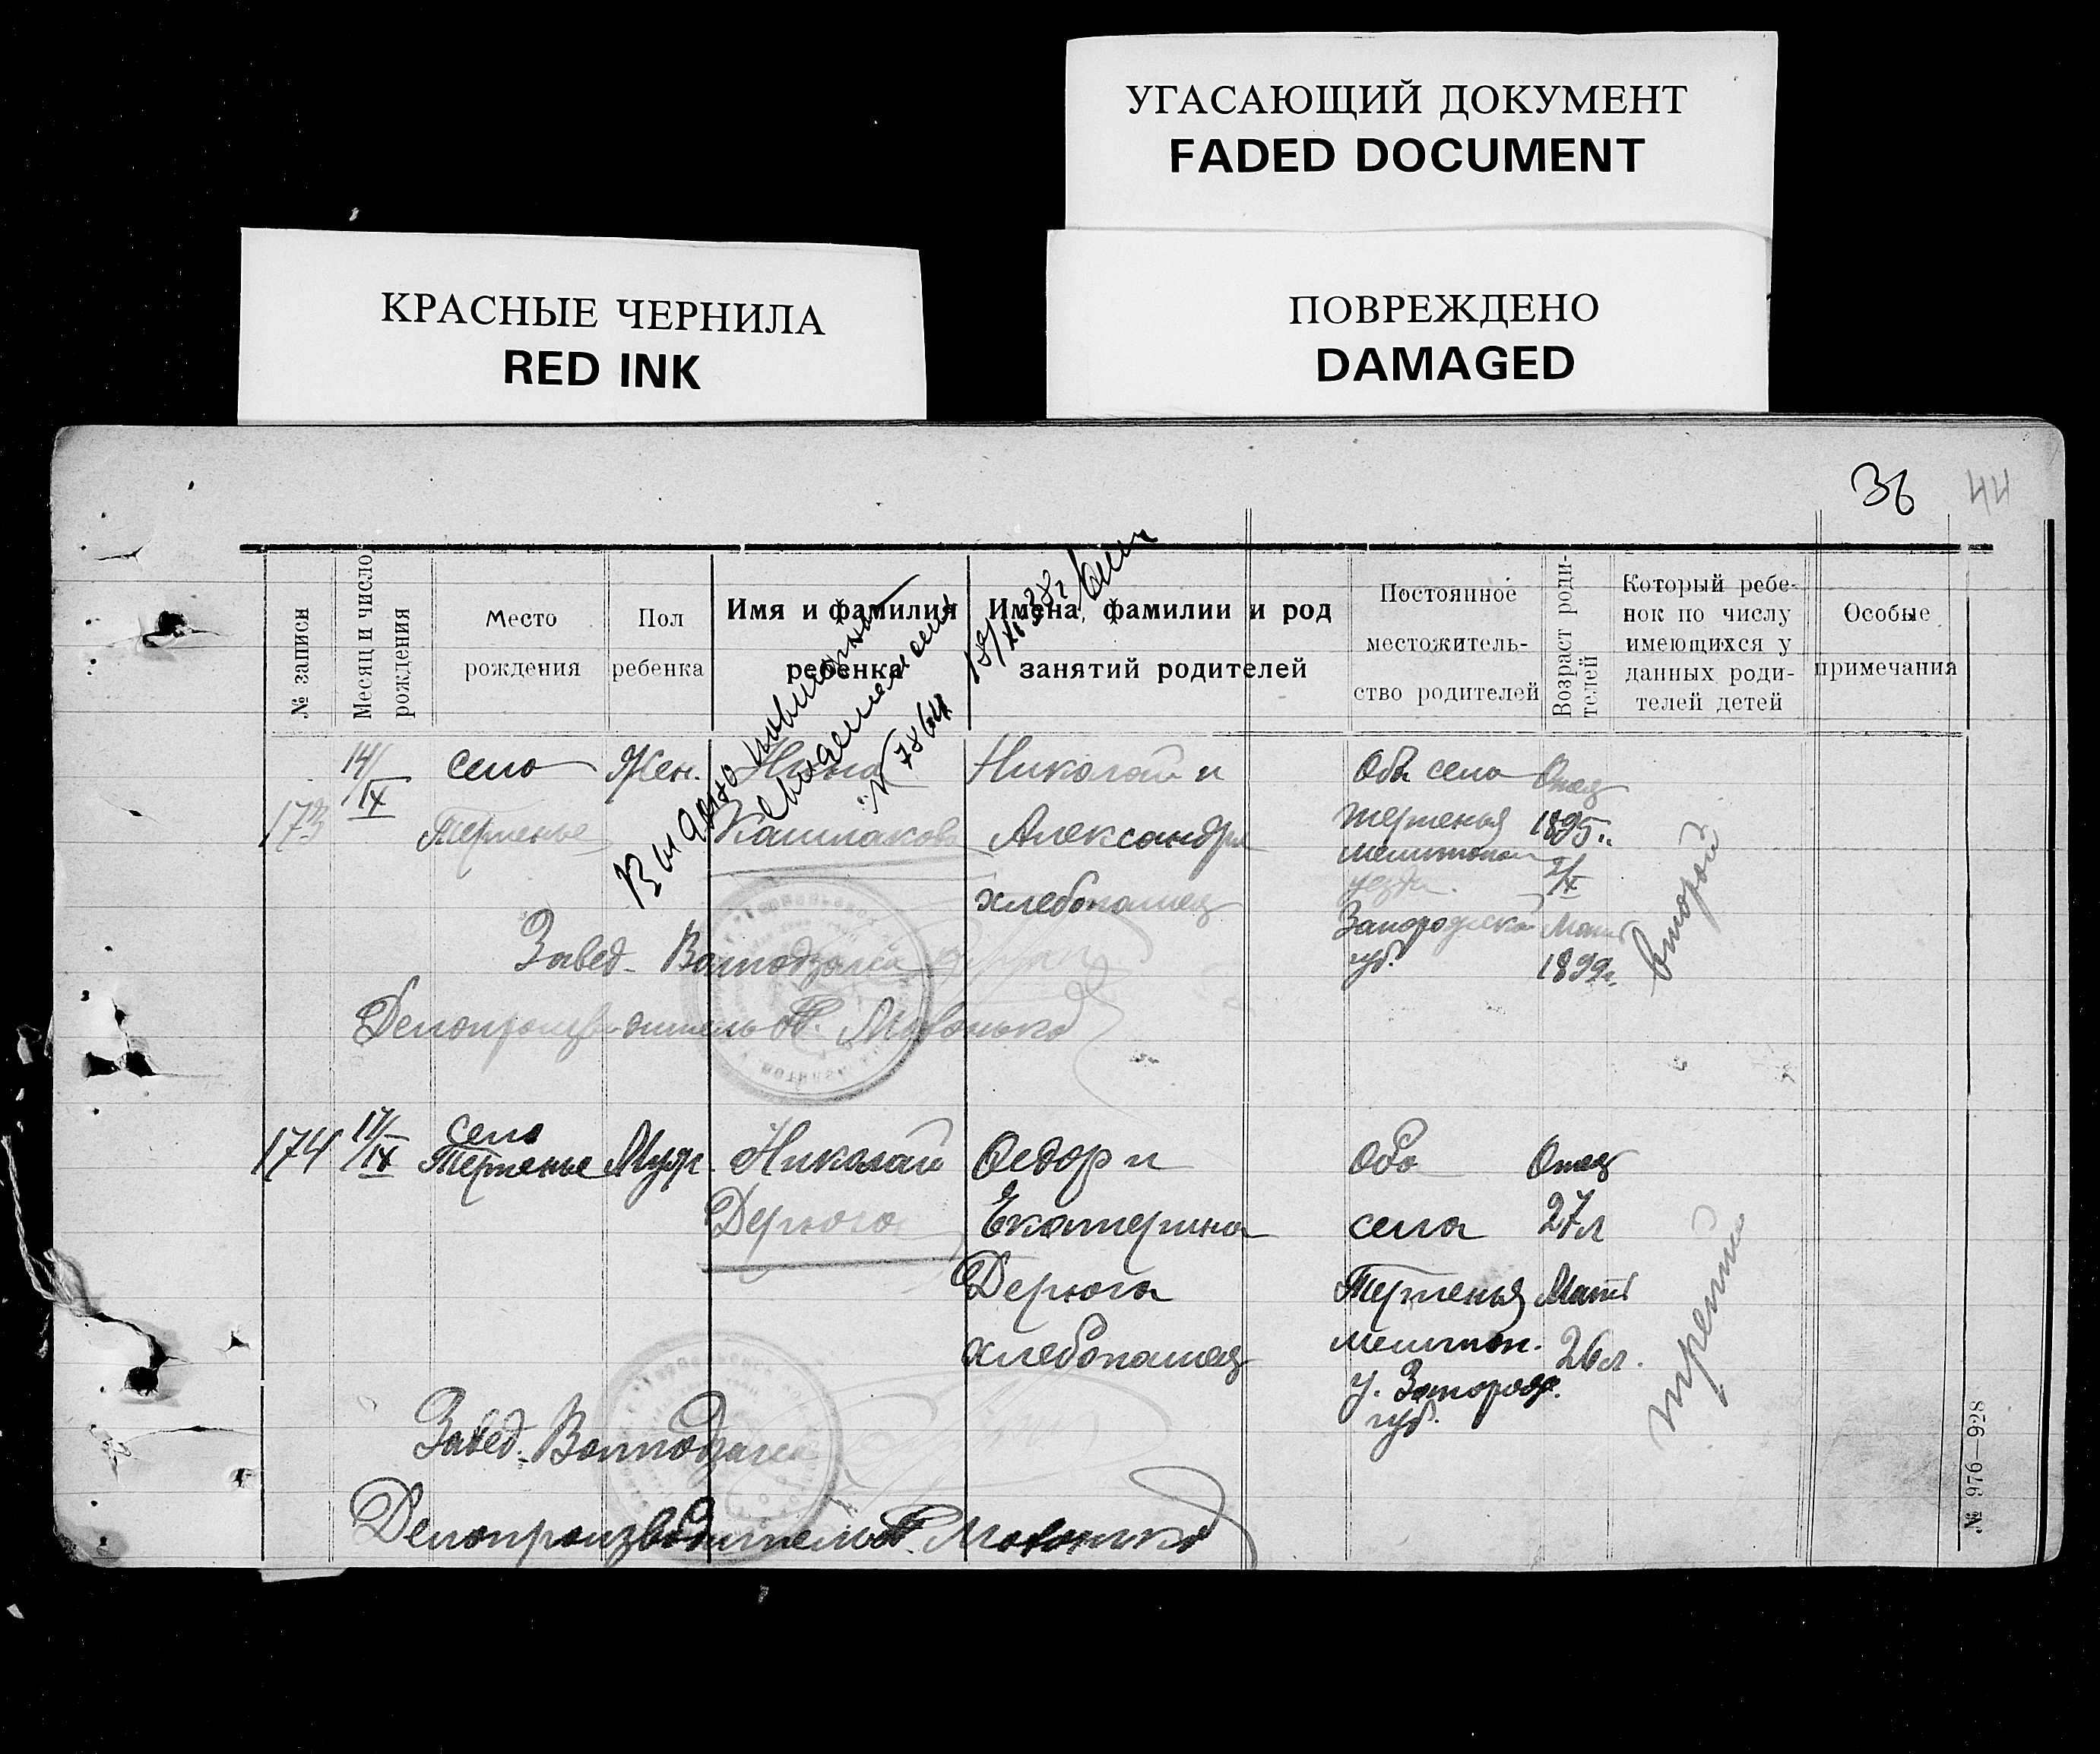 УГАСАЮЩИЙ ДОКУМЕНТ
FADED DOCUMENT
КРАСНЫЕ ЧЕРНИЛА
RED INK
ПОВРЕЖДЕНО
DAMAGED
36
44
№ записи
Месяц и число рождения
Место рождения
Пол ребенка
Имя и фамилия ребенка
Имена, фамилии и род занятий родителей
Постоянное местожительство родителей
Возраст родителей
Который ребенок по числу имеющихся у данных родителей детей
Особые примечания
Выдано повторн.
свидетельст
№ 7864
173
14/IX
село
Терпенье
Жен.
Нина
Кашлакова
Николай и
Александра
хлебопашец
Оба села
Терпенья
мелитопол
уезда.
Запорожской
губ.
Отец
1895г.
2/X
Мать
1899г.
второй
Завед. Волподзагса
Делопроизводитель
174
17/IX
село
Терпенье
Муж
Николай
Дерюга
Федор и
Екатерина
Дерюга
хлебопашец
оба
села
Терпенья
мелитоп.
у. Запорож.
губ.
Отец
27л
Мать
26л.
третий
Завед. Волподзагса
Делопроизводитель
№ 976—928